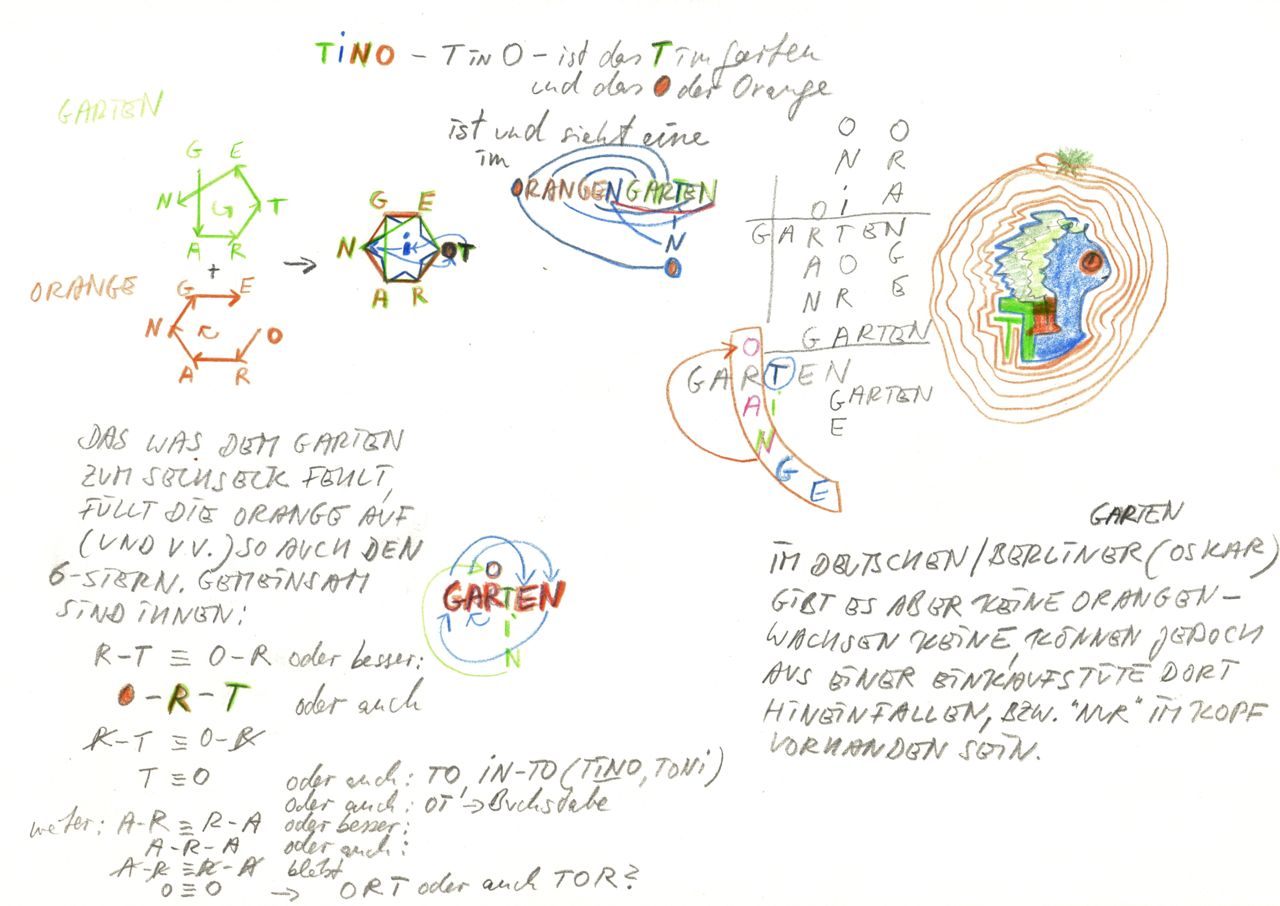 TiNO – TiNO – ist das T im Garten
und das O der Orange
ist und sieht eine
im
ORANGENGARTEN
i
N
O
GARTEN
G E
N T
G
A R
+
ORANGE
G E
N O
A R
→
G E
N i OT
A R
O O
N R
O i A
GARTEN
A O G
N R E
GARTEN
O
GARTEN
A i
N
G
E
GARTEN
G
E
DAS WAS DEM GARTEN
ZUM SECHSECK FEHLT,
FÜLLT DIE ORANGE AUF
(UND V.V.) SO AUCH DEN
6-STERN. GEMEINSAM
SIND IHNEN:
R-T ≡ O-R oder besser:
O-R-T oder auch
R-T ≡ O-R
T ≡ O oder auch: TO, iN-TO (TiNO, TONi)
oder auch: OT → Buchstabe
weiter: A-R ≡ R-A oder besser:
A-R-A oder auch:
A-R ≡ R-A bleibt
O ≡ O → ORT oder auch TOR?
O
GARTEN
i
N
GARTEN
IM DEUTSCHEN/BERLINER (OSKAR)
GIBT ES ABER KEINE ORANGEN –
WACHSEN KEINE, KÖNNEN JEDOCH
AUS EINER EINKAUFSTÜTE DORT
HINEINFALLEN, BZW. "NUR" IM KOPF
VORHANDEN SEIN.